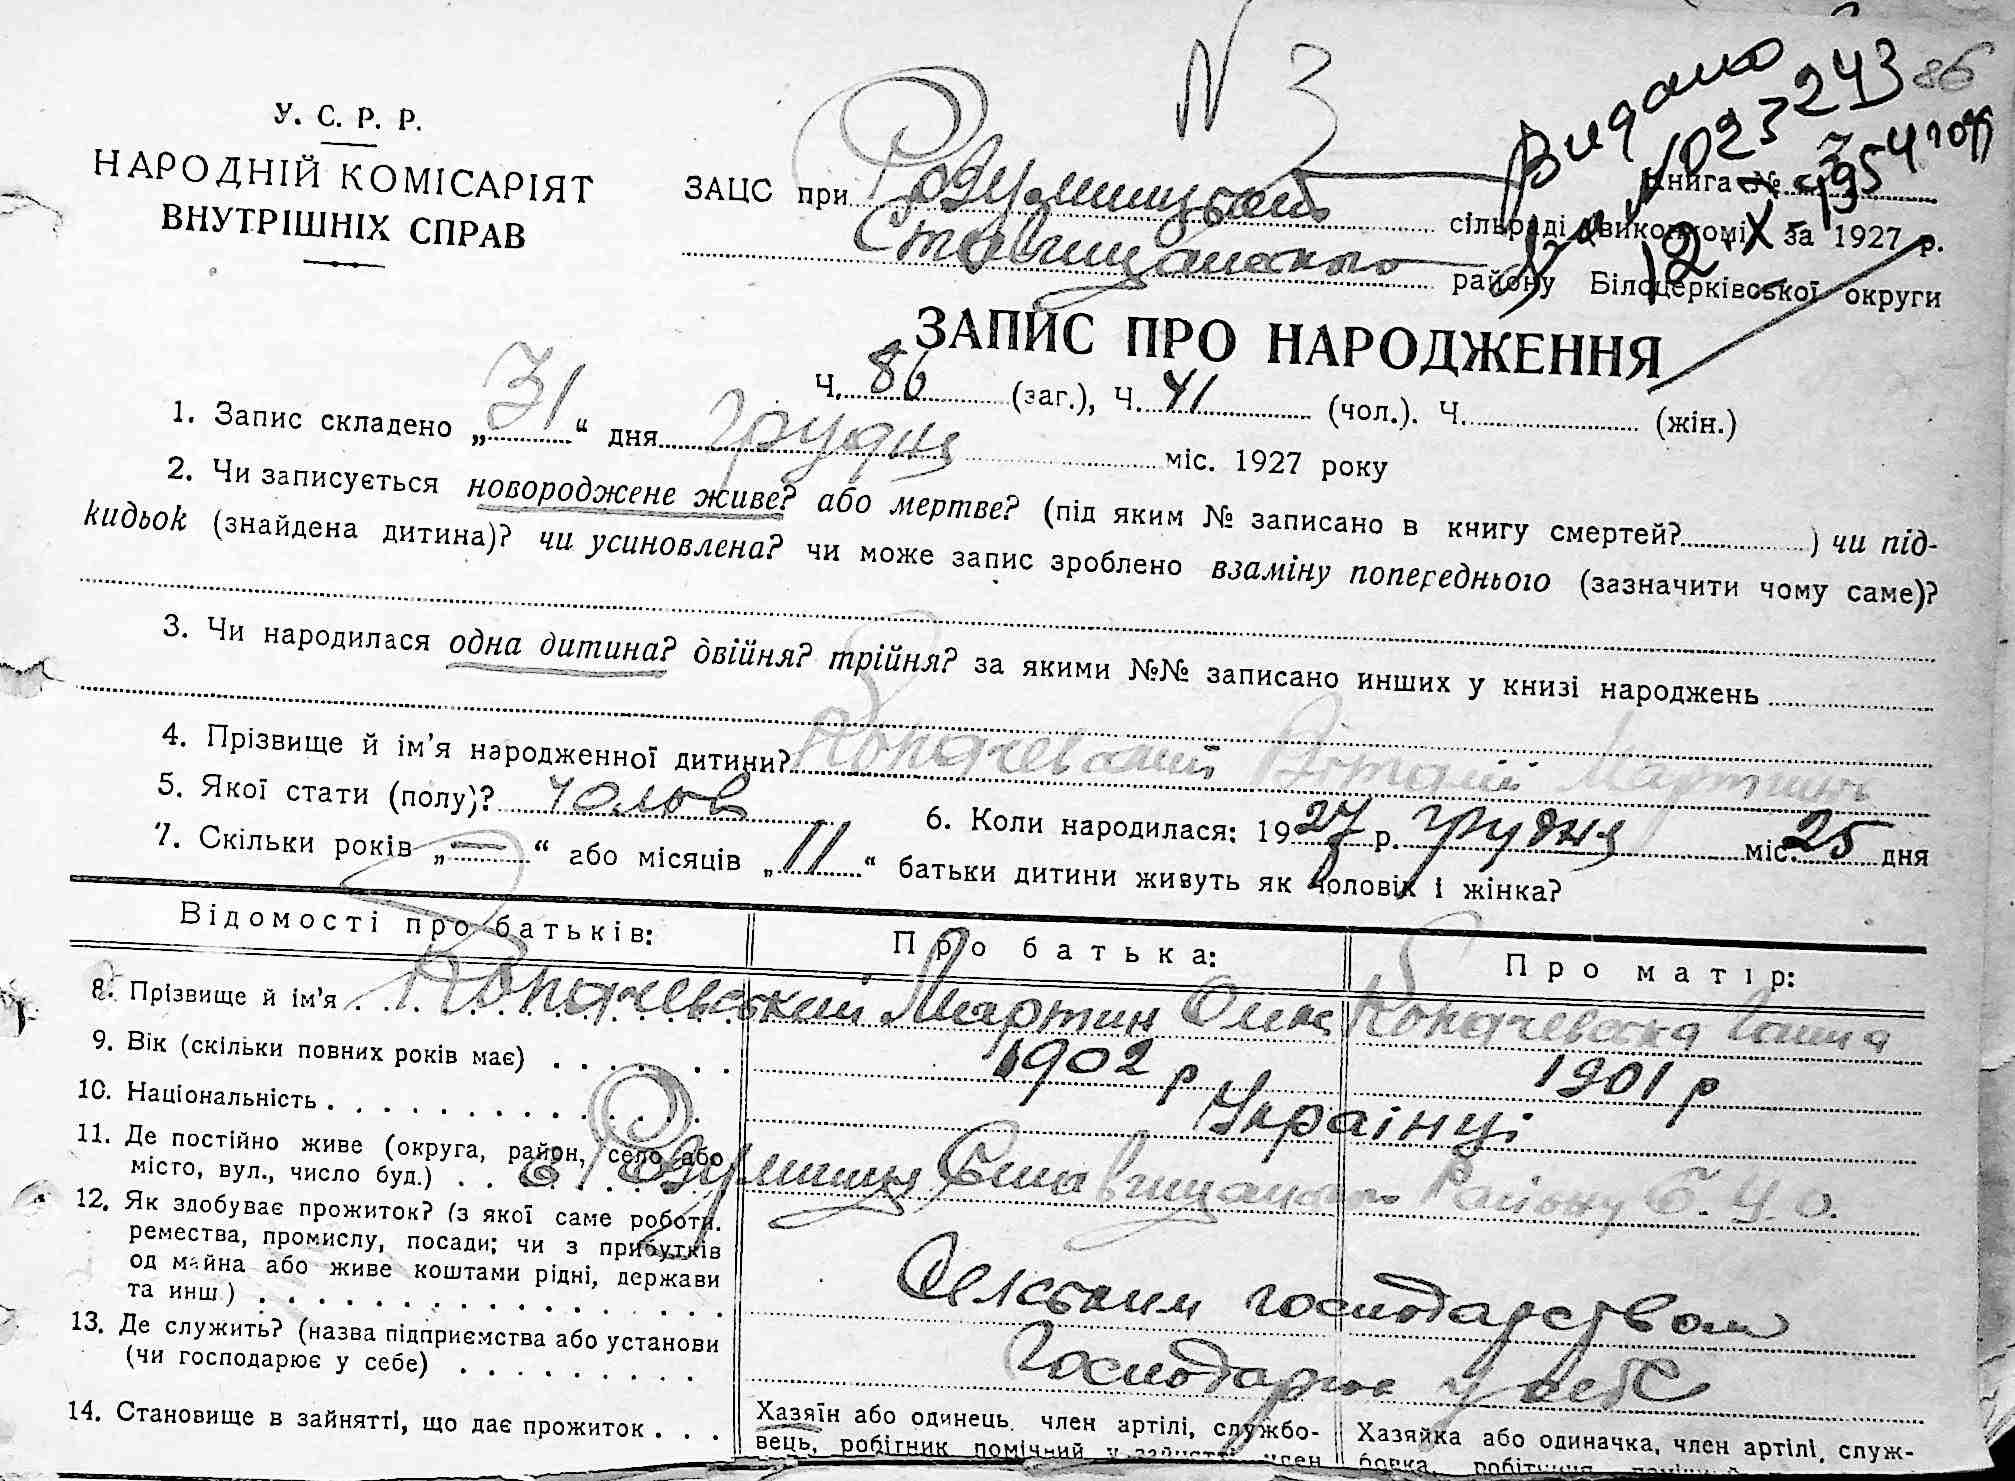 N 3
Видано
№023243
86
У. С. Р. Р.
НАРОДНІЙ КОМІСАРІЯТ
ВНУТРІШНІХ СПРАВ
ЗАЦС при Розумницькій сільраді (виконкомі) за 1927 р.
Книга №
12 X 1954
Ставищанського району Білоцерківської округи
ЗАПИС ПРО НАРОДЖЕННЯ
Ч. 86 (заг.), Ч. 41 (чол.). Ч. (жін.)
1. Запис складено „31“ дня грудня міс. 1927 року
2. Чи записується новороджене живе? або мертве? (під яким № записано в книгу смертей? ) чи під-
кидьок (знайдена дитина)? чи усиновлена? чи може запис зроблено взаміну попереднього (зазначити чому саме)?
3. Чи народилася одна дитина? двійня? трійня? за якими №№ записано инших у книзі народжень
4. Прізвище й ім'я народженної дитини? Копачевський Віталій Мартинів
5. Якої стати (полу)? чолов 6. Коли народилася: 1927 р. грудня міс. 25 дня
7. Скільки років „—“ або місяців „11“ батьки дитини живуть як чоловік і жінка?
Відомості про батьків: Про батька: Про матір:
8. Прізвище й ім'я Копачевський Мартин Олек Копачевська Ганна
9. Вік (скільки повних років має) 1902 р 1901 р
10. Національність Українці
11. Де постійно живе (округа, район, село або
місто, вул., число буд.) с. Розумниця Ставищанського Району Б. Ц. О.
12. Як здобуває прожиток? (з якої саме роботи.
ремества, промислу, посади; чи з прибутків
од майна або живе коштами рідні, держави
та инш.) Сільським господарством
13. Де служить? (назва підприємства або установи
(чи господарює у себе) Господарює у себе
14. Становище в зайнятті, що дає прожиток
Хазяїн або одинець. член артілі, службо-
вець, робітник помічний у зайнятті член
Хазяйка або одиначка, член артілі, служ-
бовка, робітниця